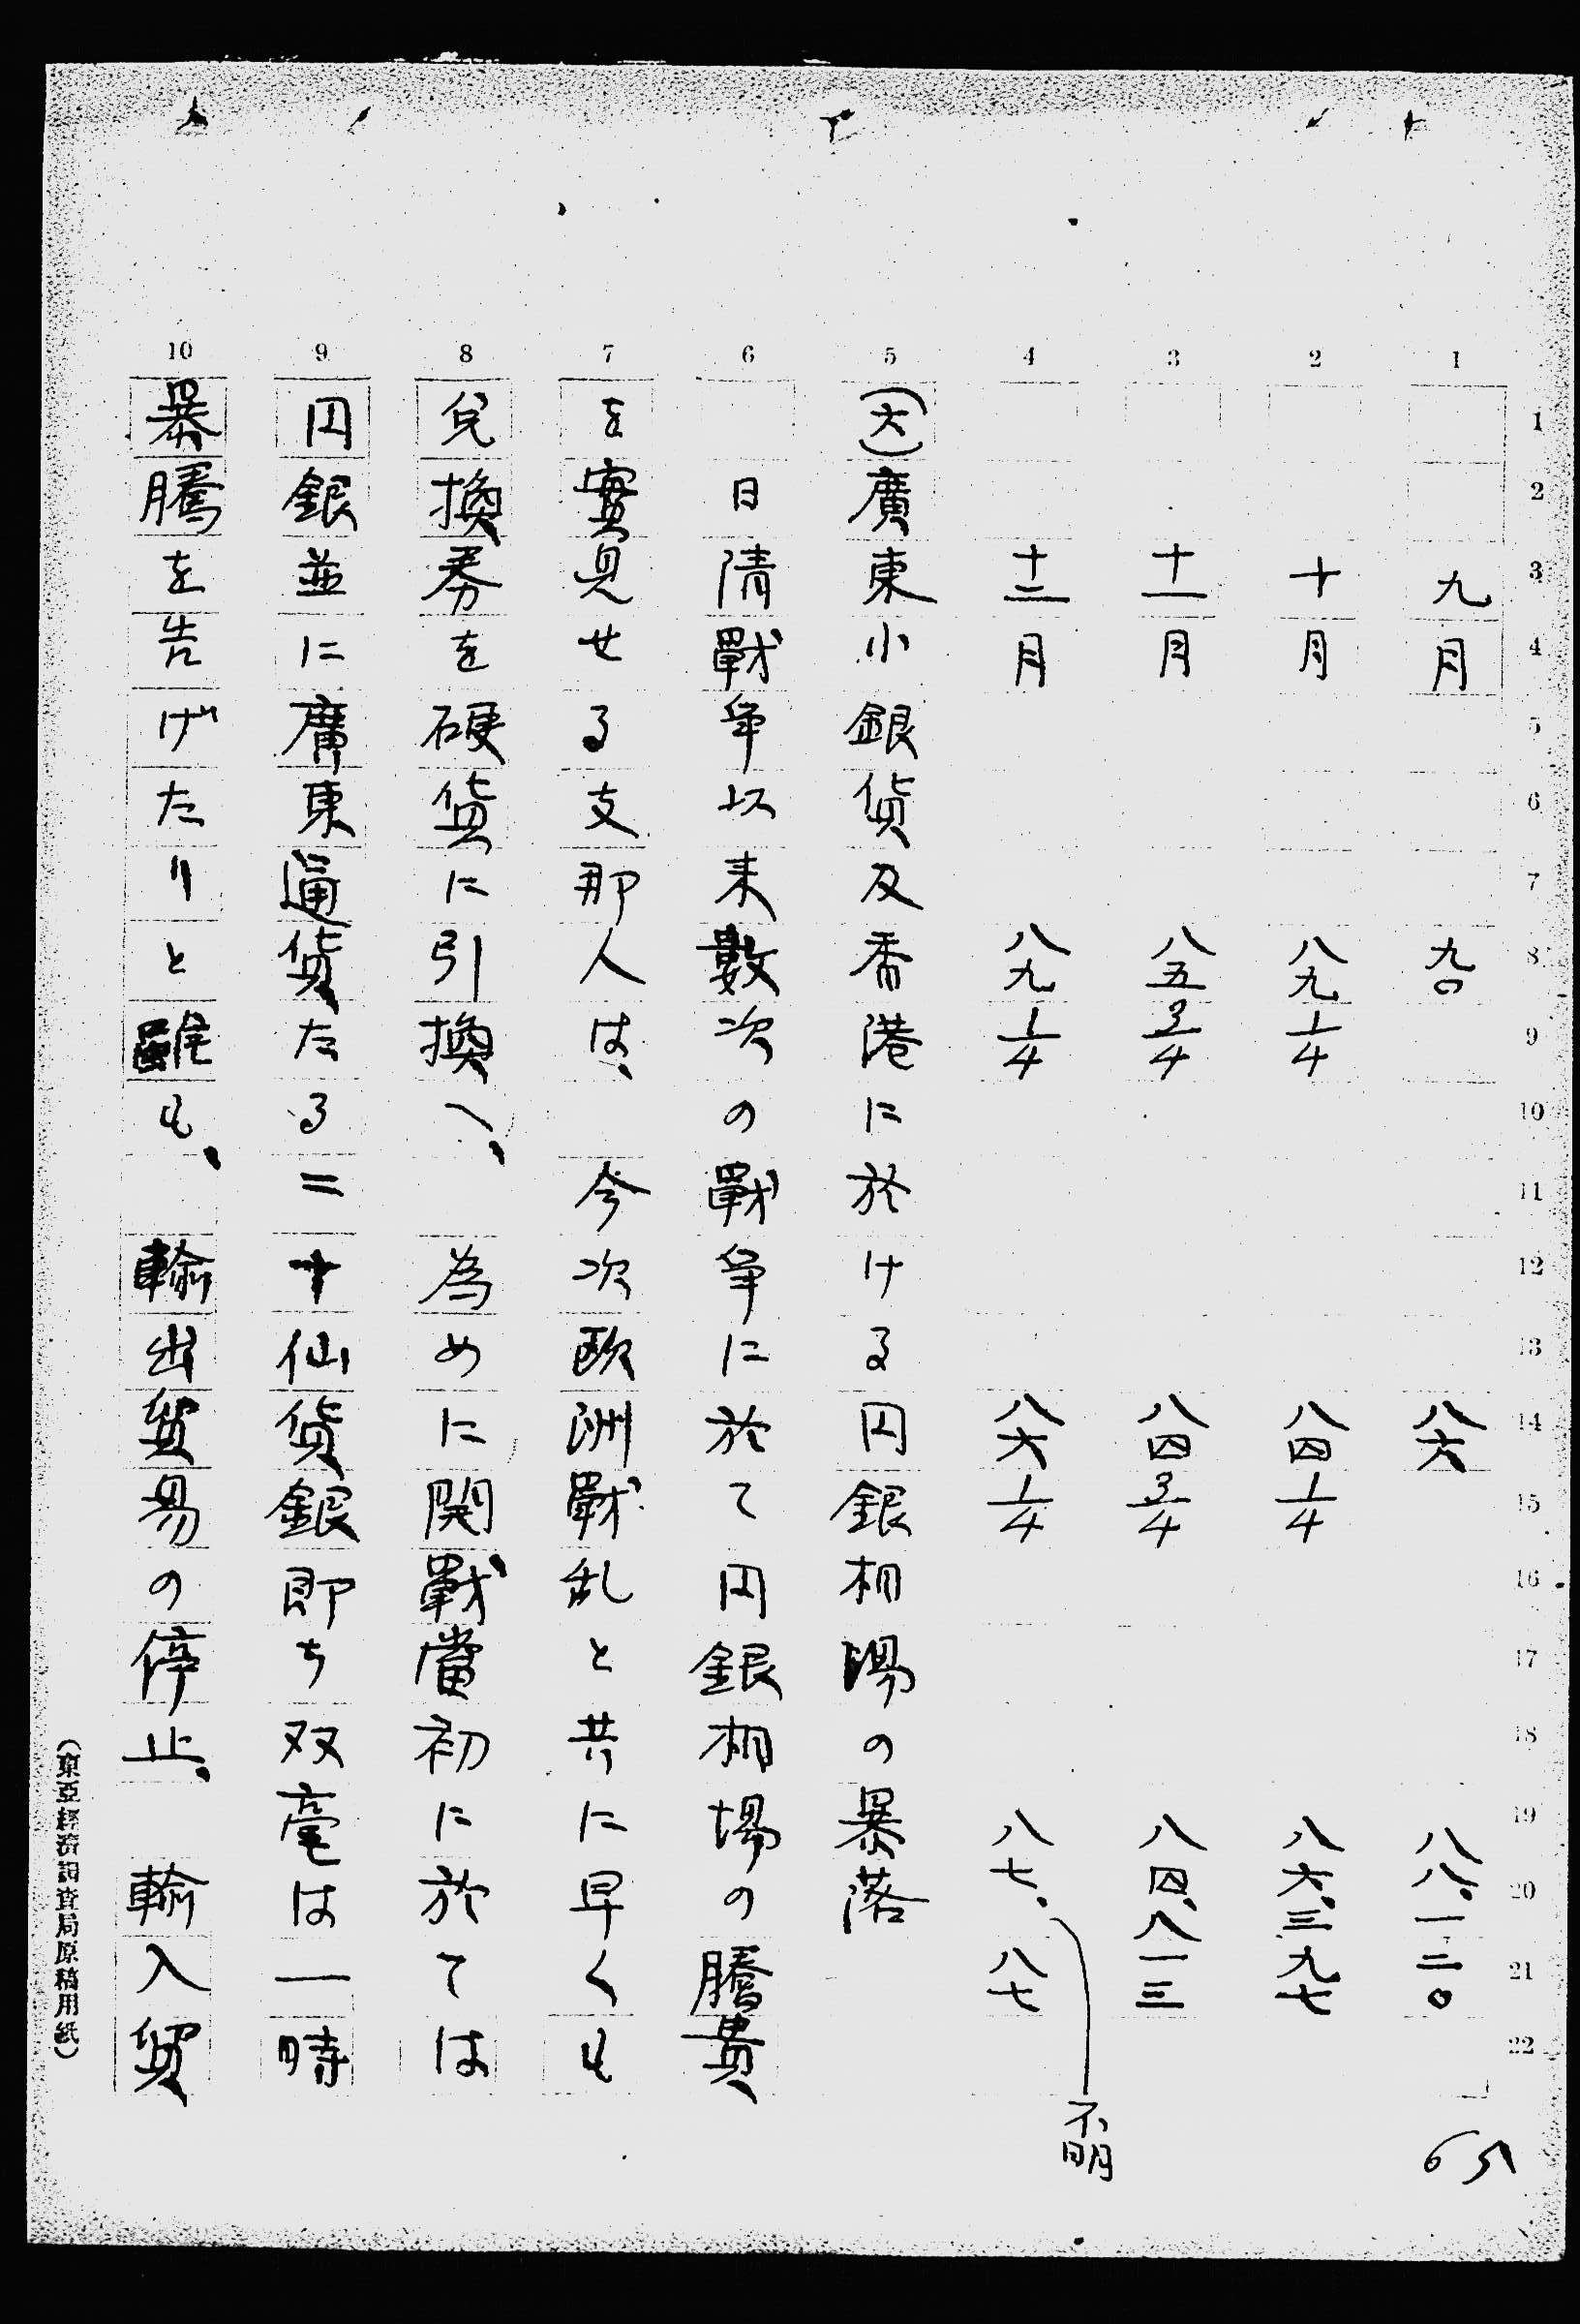 九月 九〇 八六 八八.一二〇
十月 八九1/4 八四1/4 八六.三九七
十一月 八五3/4 八四3/4 八四.八一三
十二月 八九1/4 八六1/4 八七.八七 不明
(六)廣東小銀貨及香港に於ける円銀相場の暴落
日清戰爭以来數次の戰爭に於て円銀相場の騰貴
を實見せる支那人は、今次欧洲戰乱と共に早くも
兌換券を硬貨に引換へ、為めに開戰當初に於ては
円銀並に廣東通貨たる二十仙貨銀即ち双毫は一時
暴騰を告げたりと雖も、輸出貿易の停止、輸入貿
(東亞經濟調査局原稿用紙)
1 2 3 4 5 6 7 8 9 10
1 2 3 4 5 6 7 8 9 10 11 12 13 14 15 16 17 18 19 20 21 22